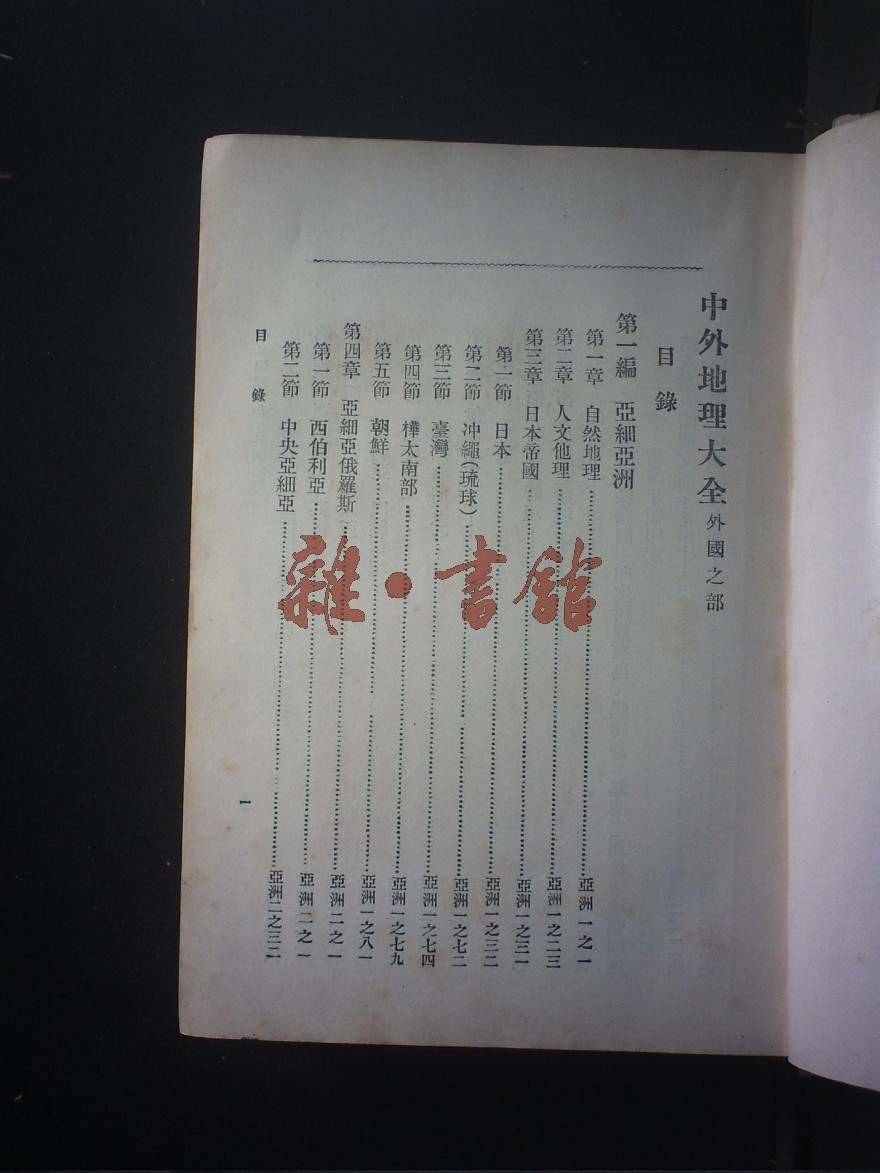 中外地理大全 外國之部
目錄
第一編 亞細亞洲
第一章 自然地理……亞洲一之一
第二章 人文他理……亞洲一之二三
第三章 日本帝國……亞洲一之三一
第一節 日本……亞洲一之三二
第二節 冲繩(琉球)……亞洲一之七二
第三節 臺灣……亞洲一之七四
第四節 樺太南部……亞洲一之七九
第五節 朝鮮……亞洲一之八一
第四章 亞細亞俄羅斯……亞洲二之一
第一節 西伯利亞……亞洲二之一
第二節 中央亞細亞……亞洲二之三二
目錄
一
雜·書館